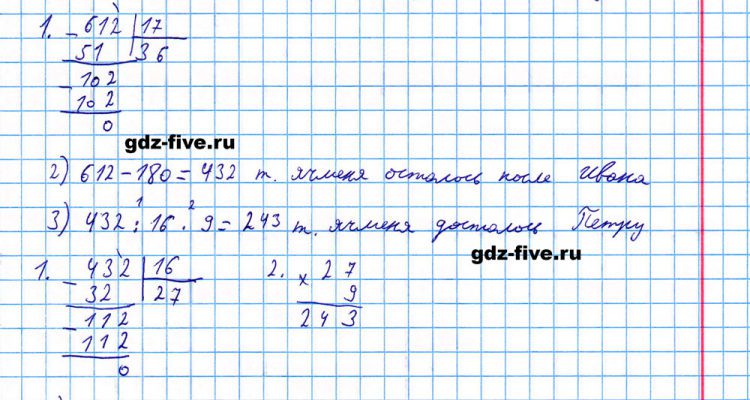 1. - 612 | 17
51 | 36
- 102
102
0
gdz-five.ru
2) 612 - 180 = 432 т. ячменя осталось после Ивана
3) 432 : 16 · 9 = 243 т. ячменя досталось Петру
1 2
gdz-five.ru
1. - 432 | 16
32 | 27
- 112
112
0
2. × 27
9
243